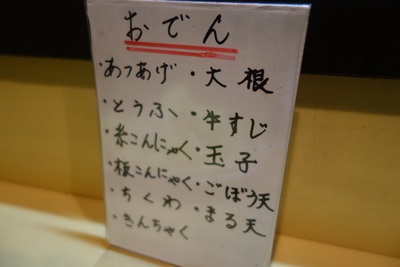 おでん
・あつあげ・大根
・とうふ・牛すじ
・糸こんにゃく・玉子
・板こんにゃく・ごぼう天
・ちくわ・まる天
・きんちゃく